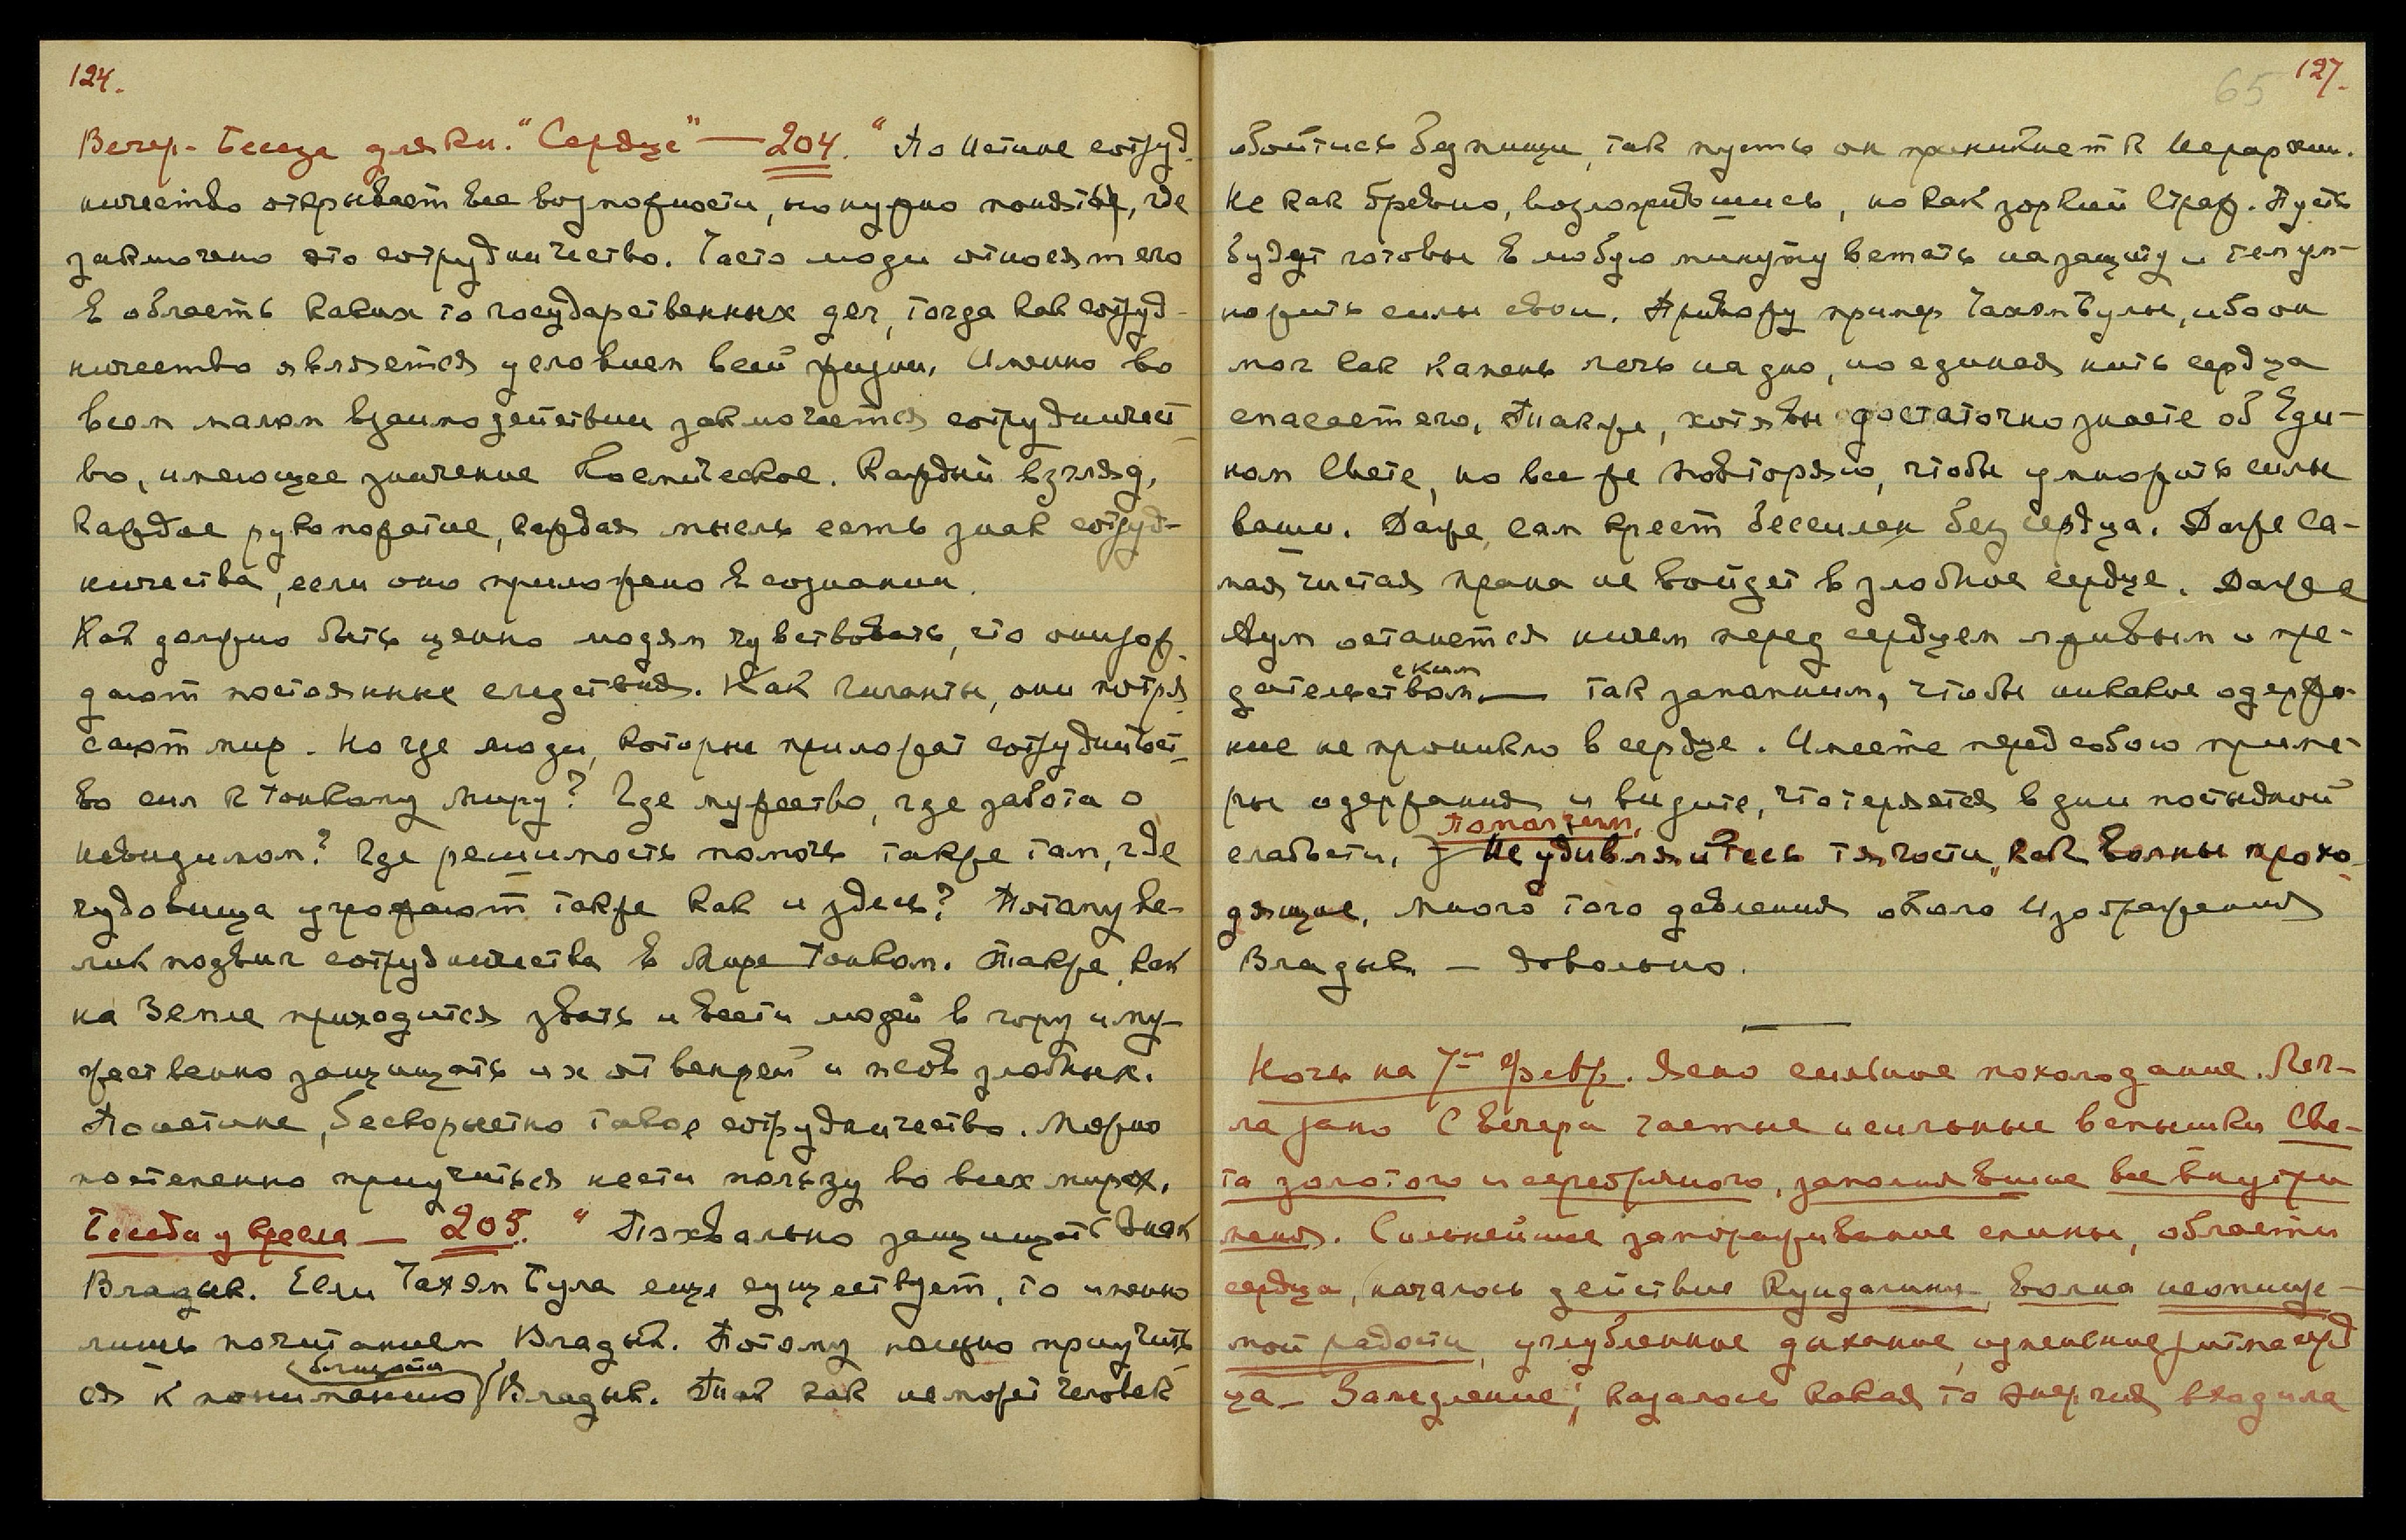 124.
Вечер. Беседа для кн. "Сердце" — 204. "По Истине сотруд-
ничество открывает все возможности, но нужно понять, где
заключено это сотрудничество. Часто люди относят его
в область каких то государственных дел, тогда как сотруд-
ничество является условием всей жизни. Именно во
всем малом взаимодействии заключается сотрудничест-
во, имеющее значение Космическое. Каждый взгляд,
каждое рукопожатие, каждая мысль есть знак сотруд-
ничества, если оно приложено в сознании.
Как должно быть ценно людям чувствовать, что они рож-
дают постоянные следствия. Как гиганты, они потря-
сают мир. Но где люди, которые приложат сотрудничест-
во сил к тонкому Миру? Где мужество, где забота о
невидимом? Где решимость помочь также там, где
чудовища угрожают также как и здесь? Потому ве-
лик подвиг сотрудничества в Мире Тонком. Также, как
на Земле приходится звать и вести людей в гору и му-
жественно защищать их от вепрей и псов злобных.
Поистине, бескорыстно такое сотрудничество. Можно
постепенно приучиться нести пользу во всех мирах.
Беседа у кресла — 205. "Похвально защищать Знак
Владык. Если Тахэм Тула еще существует, то именно
лишь почитанием Владык. Потому нужно приучить-
ся к пониманию (близости) Владык. Так как не может человек
65 127.
обойтись без пищи, так пусть он приникнет к Иерархии.
Не как бревно, возложившись, но как зоркий Страж. Пусть
будет готовы в любую минуту встать на защиту и тем ум-
ножить силы свои. Привожу пример Тахэм Тулы, ибо он
мог как камень лечь на дно, но единая нить сердца
спасает его. Также, хотя вы достаточно знаете об Еди-
ном Свете, но все же повторяю, чтобы умножить силы
ваши. Даже сам крест бессилен без сердца. Даже са-
мая чистая прана не войдет в злобное сердце. Даже
Аум останется ничем перед сердцем лживым и пре-
дательским — так запомним, чтобы никакое одержа-
ние не проникло в сердце. Имеете перед собою приме-
ры одержания и видите, что теряется в дни постыдной
слабости. Помолчим. Не удивляйтесь тягости, как волны прохо-
дящие, много того давления около Изображения
Владык — довольно.
Ночь на 7ое февр. Ясно сильное похолодание. Лег-
ла рано с вечера частые и сильные вспышки Све-
та золотого и серебряного, заполнявшие все внутри
меня. Сильнейшее замораживание спины, области
сердца, началось действие Кундалини, волна неописуе-
мой радости, углубленное дыхание, изменение ритма серд
ца — Замедление; казалось какая то энергия входила